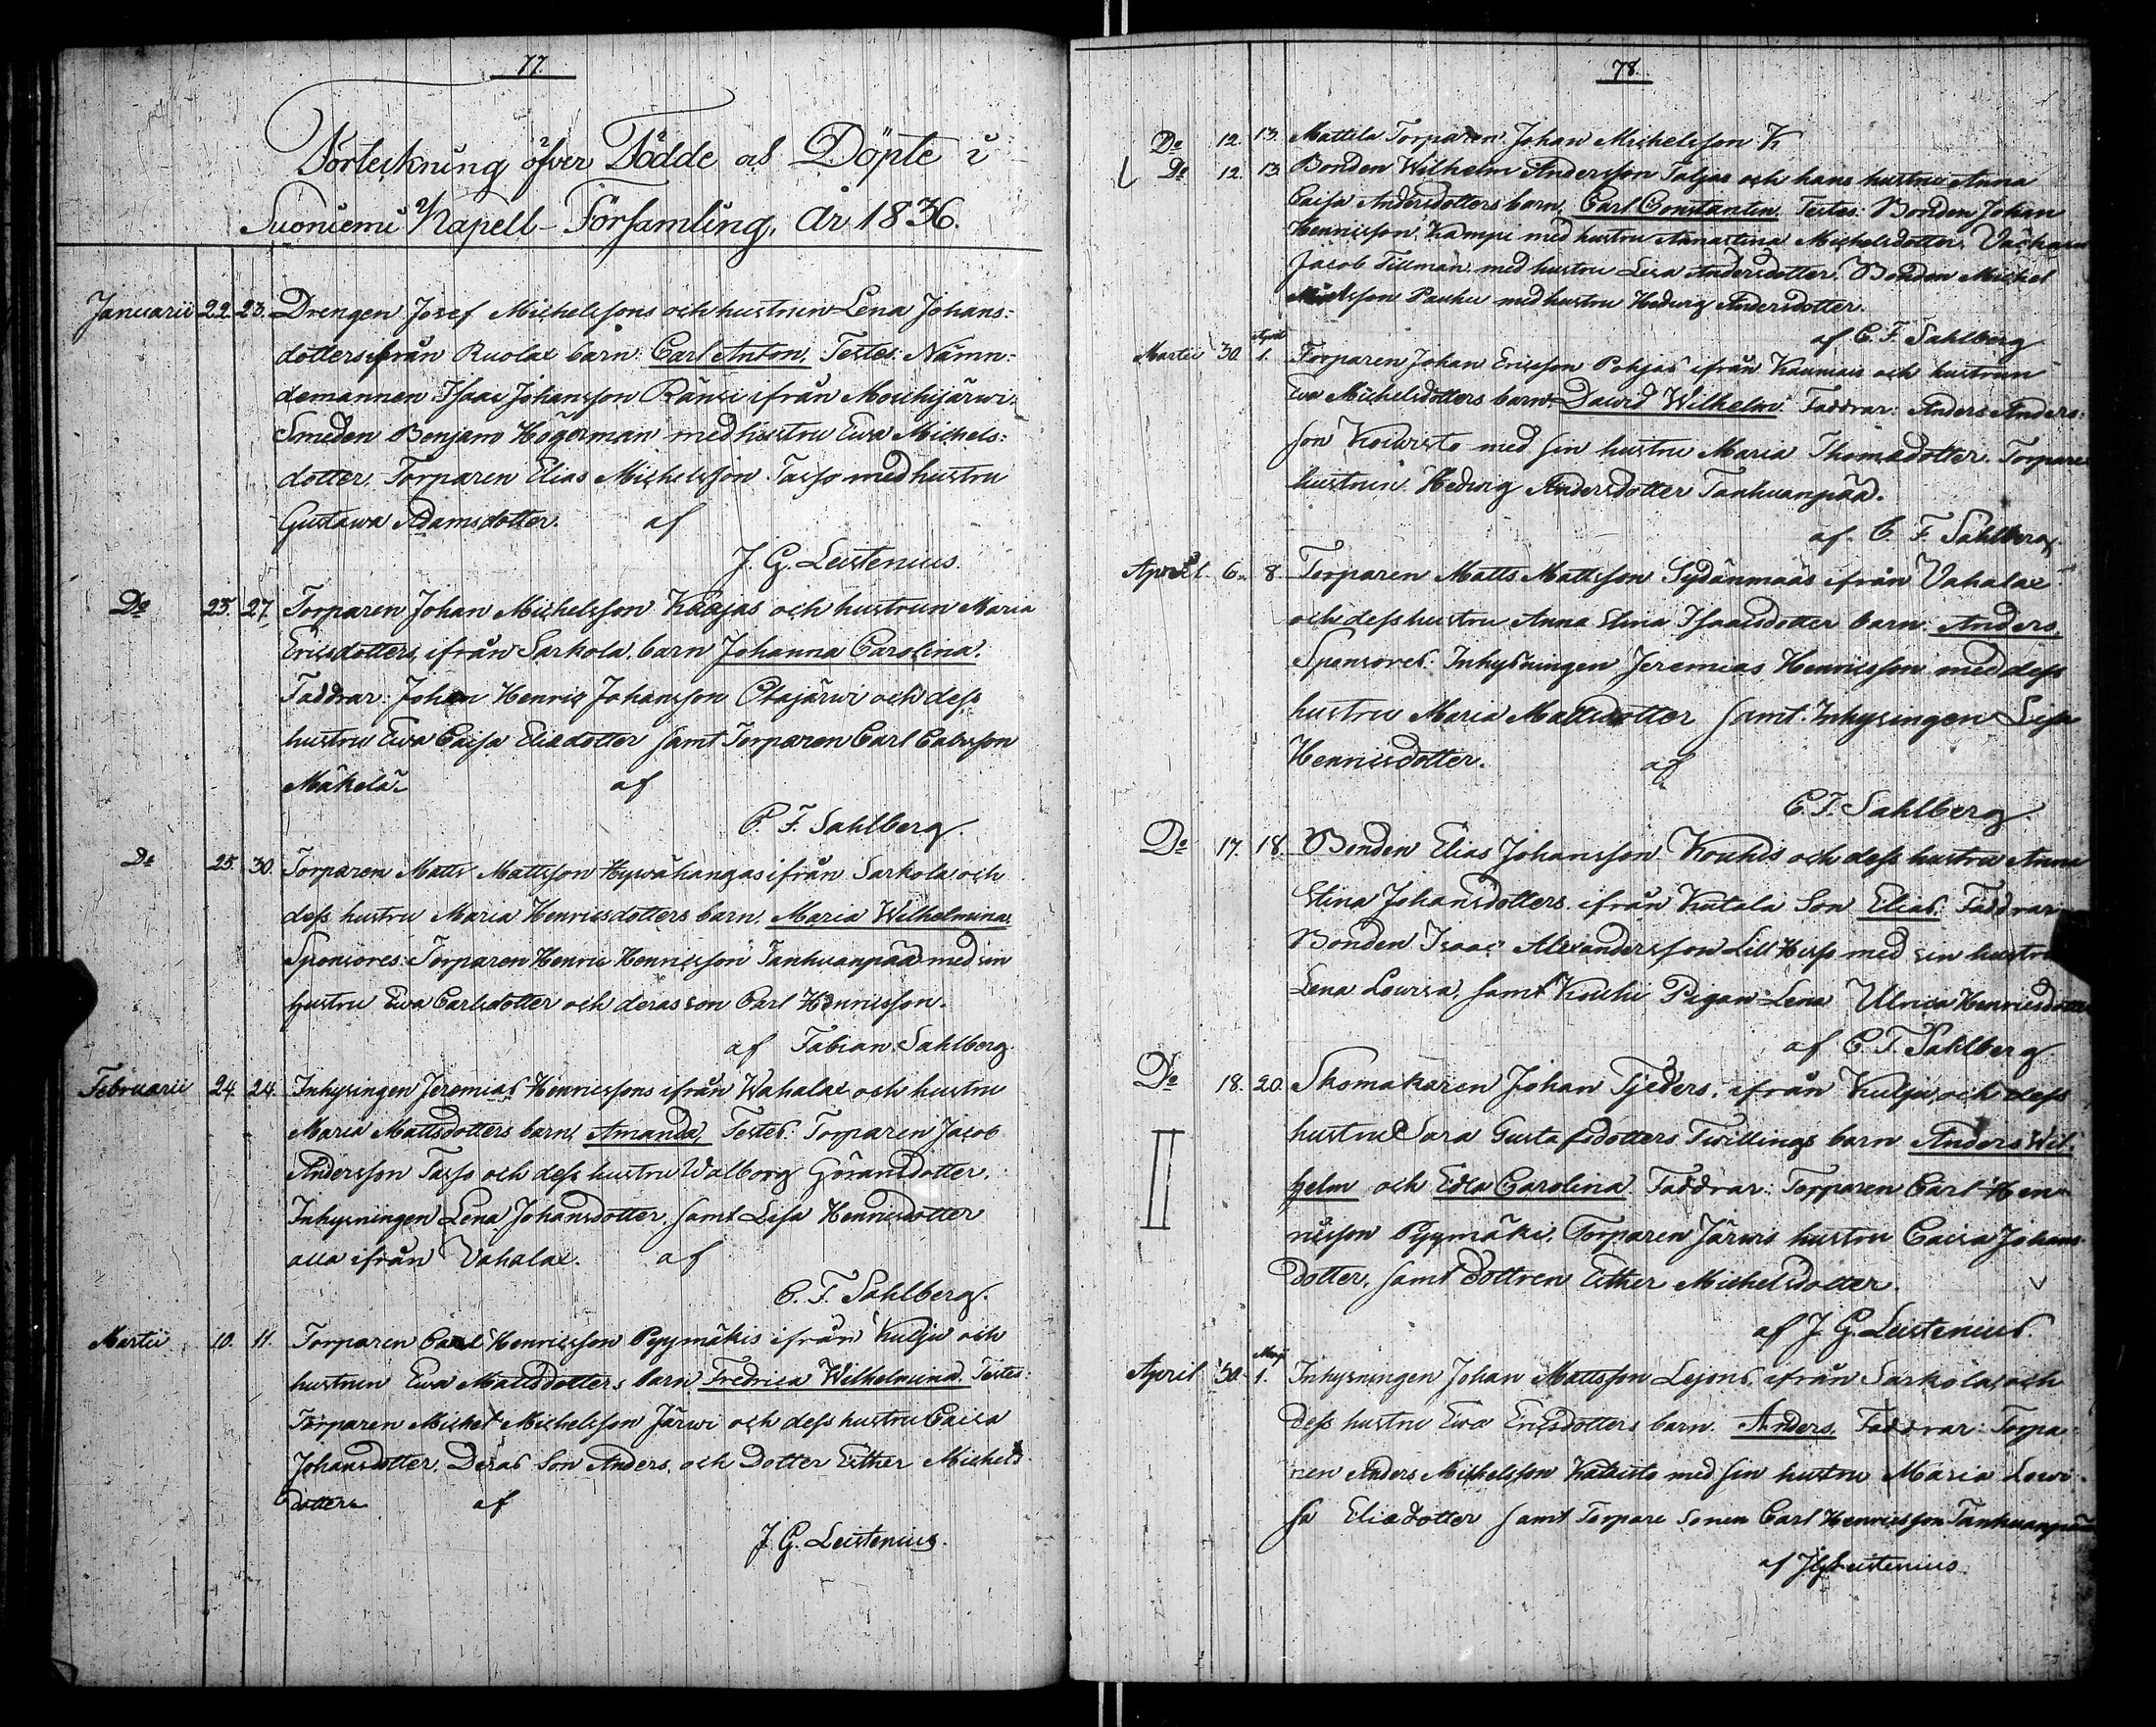 77.
Förteckning öfver Födde och Döpte i
Suoniemi Kapell-Församling, år 1836.
Januarii 22. 23. Drengen Josef Michelssons och hustrun Lena Johans=
dotters ifrån Ruolax barn: Carl Anton. Testes: Nämn=
demannen Isaac Johansson Ränsi ifrån Mouhijärwi.
Smeden Benjam Högerman med hustru Ewa Michels=
dotter. Torparen Elias Michelsson Tasso med hustru
Gustawa Adamsdotter. af
J. G. Leistenius.
Do 25. 27. Torparen Johan Michelsson Kaajas och hustrun Maria
Ericsdotters, ifrån Sarkola, barn Johanna Carolina.
Faddrar: Johan Henric Johansson Otajärwi och dess
hustru Ewa Caisa Eliædotter samt Torparen Carl Carlsson
Mäkelä af
C. F. Sahlberg.
Do 25. 30. Torparen Matts Mattsson Hywähangas ifrån Sarkola och
dess hustru Maria Henricsdotters barn, Maria Wilhelmina,
Sponsores: Torparen Henric Henricsson Tanhuanpää med sin
hustru Ewa Carlsdotter och deras son Carl Henricsson.
af Fabian Sahlberg.
Februarii 24. 24. Inhysingen Jeremias Henricssons ifrån Wahalax och hustru
Maria Mattsdotters barn, Amanda, Testes: Torparen Jacob
Andersson Tasso och dess hustru Walborg Göransdotter.
Inhysningen Lena Johansdotter, samt Lisa Henricsdotter
alla ifrån Vahalax. af
C. F. Sahlberg.
Martii 10. 11. Torparen Carl Henricsson Pyymäkis ifrån Kulju och
hustrun Ewa Mattsdotters barn Fredrica Wilhelmina. Testes:
Torparen Michel Michelsson Järwi och dess hustru Caisa
Johansdotter. Deras Son Anders, och Dotter Esther Michels
dotter af
J. G. Leistenius.
78.
Do 12. 13. Mattila Torparen Johan Michelsson K
Do 12. 13. Bonden Wilhelm Andersson Taljas och hans hustru Anna
Caisa Andersdotters barn, Carl Constantin. Testes: Bonden Johan
Henricsson Kämpi med hustru Annastina Michelsdotter,
Jacob Tillman med hustru Lisa Andersdotter. Bonden Michel
Pauhu med hustru Hedwig Andersdotter.
af C. F. Sahlberg
Martii 30. April 1. Torparen Johan Ericsson Pohjas ifrån Kauniais och hustrun
Ewa Michelsdotters barn: Dawid Wilhelm. Faddrar: Anders Anders=
son Koiwisto med sin hustru Maria Thomædotter. Torpare
hustrun Hedwig Andersdotter Tanhuanpää.
af C. F. Sahlberg.
April 6. 8. Torparen Matts Mattsson Sydänmaas ifrån Vahalax
och dess hustru Anna Stina Isaacsdotter barn: Anders.
Sponsores: Inhysningen Jeremias Henricsson med dess
hustru Maria Mattsdotter samt Inhysingen Lisa
Henricsdotter. af
C. F. Sahlberg
Do 17. 18. Bonden Elias Johansson Kouhis och dess hustru Anna
Stina Johansdotters ifrån Kutala Son Elias. Faddrar
Bonden Isaac Alexandersson Lill Hissa med sin hustru
Lena Lovisa, samt Kouhi Pigan Lena Ulrica Henricsdotter
af C. F. Sahlberg
Do 18. 20. Skomakaren Johan Tjeders, ifrån Kulju, och dess
hustru Sara Gustafsdotters Twillings barn Anders Wil=
helm och Edla Carolina. Faddrar: Torparen Carl Hen=
ricsson Pyymäki, Torparen Järwis hustru Caisa Johans
dotter, samt dottren Esther Michelsdotter.
af J. G. Leistenius.
April 30. Maji 1. Inhysningen Johan Mattsson Lejons, ifrån Sarkola, och
dess hustru Ewa Ericsdotters barn. Anders. Faddrar: Torpa
ren Anders Michelsson Katisto med sin hustru Maria Lowi=
sa Eliædotter samt Torpare Sonen Carl Henricsson Tanhuanpää
af J G Leistenius.